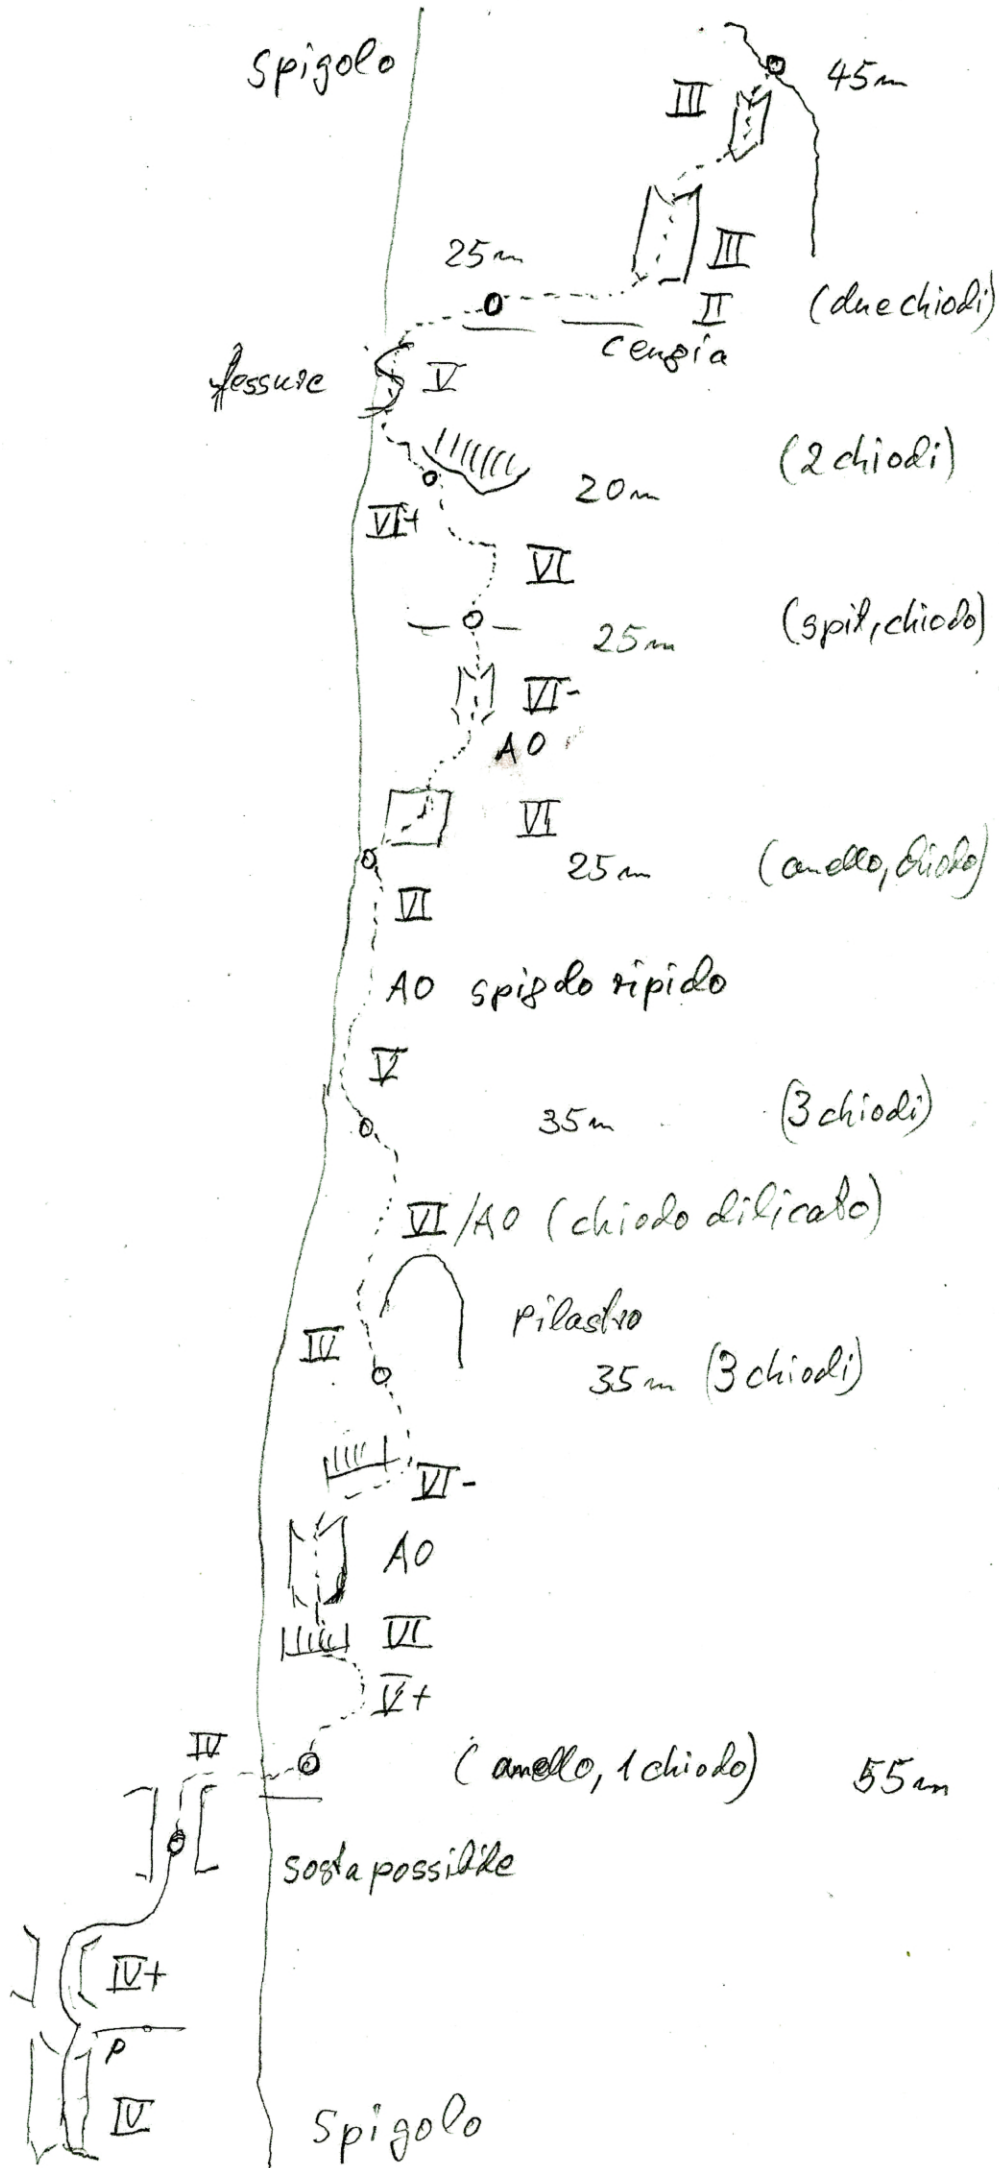 Spigolo
45m
III
III
25m
II
(due chiodi)
cengia
fessure
V
(2 chiodi)
20m
VI+
VI
(spit, chiodo)
25m
VI-
A0
VI
25m
(anello, chiodo)
VI
A0 spigolo ripido
V
35m
(3 chiodi)
VI/A0 (chiodo dilicato)
pilastro
IV
35m (3 chiodi)
VI-
A0
VI
V+
IV
(anello, 1 chiodo)
55m
sosta possibile
IV+
P
IV
Spigolo